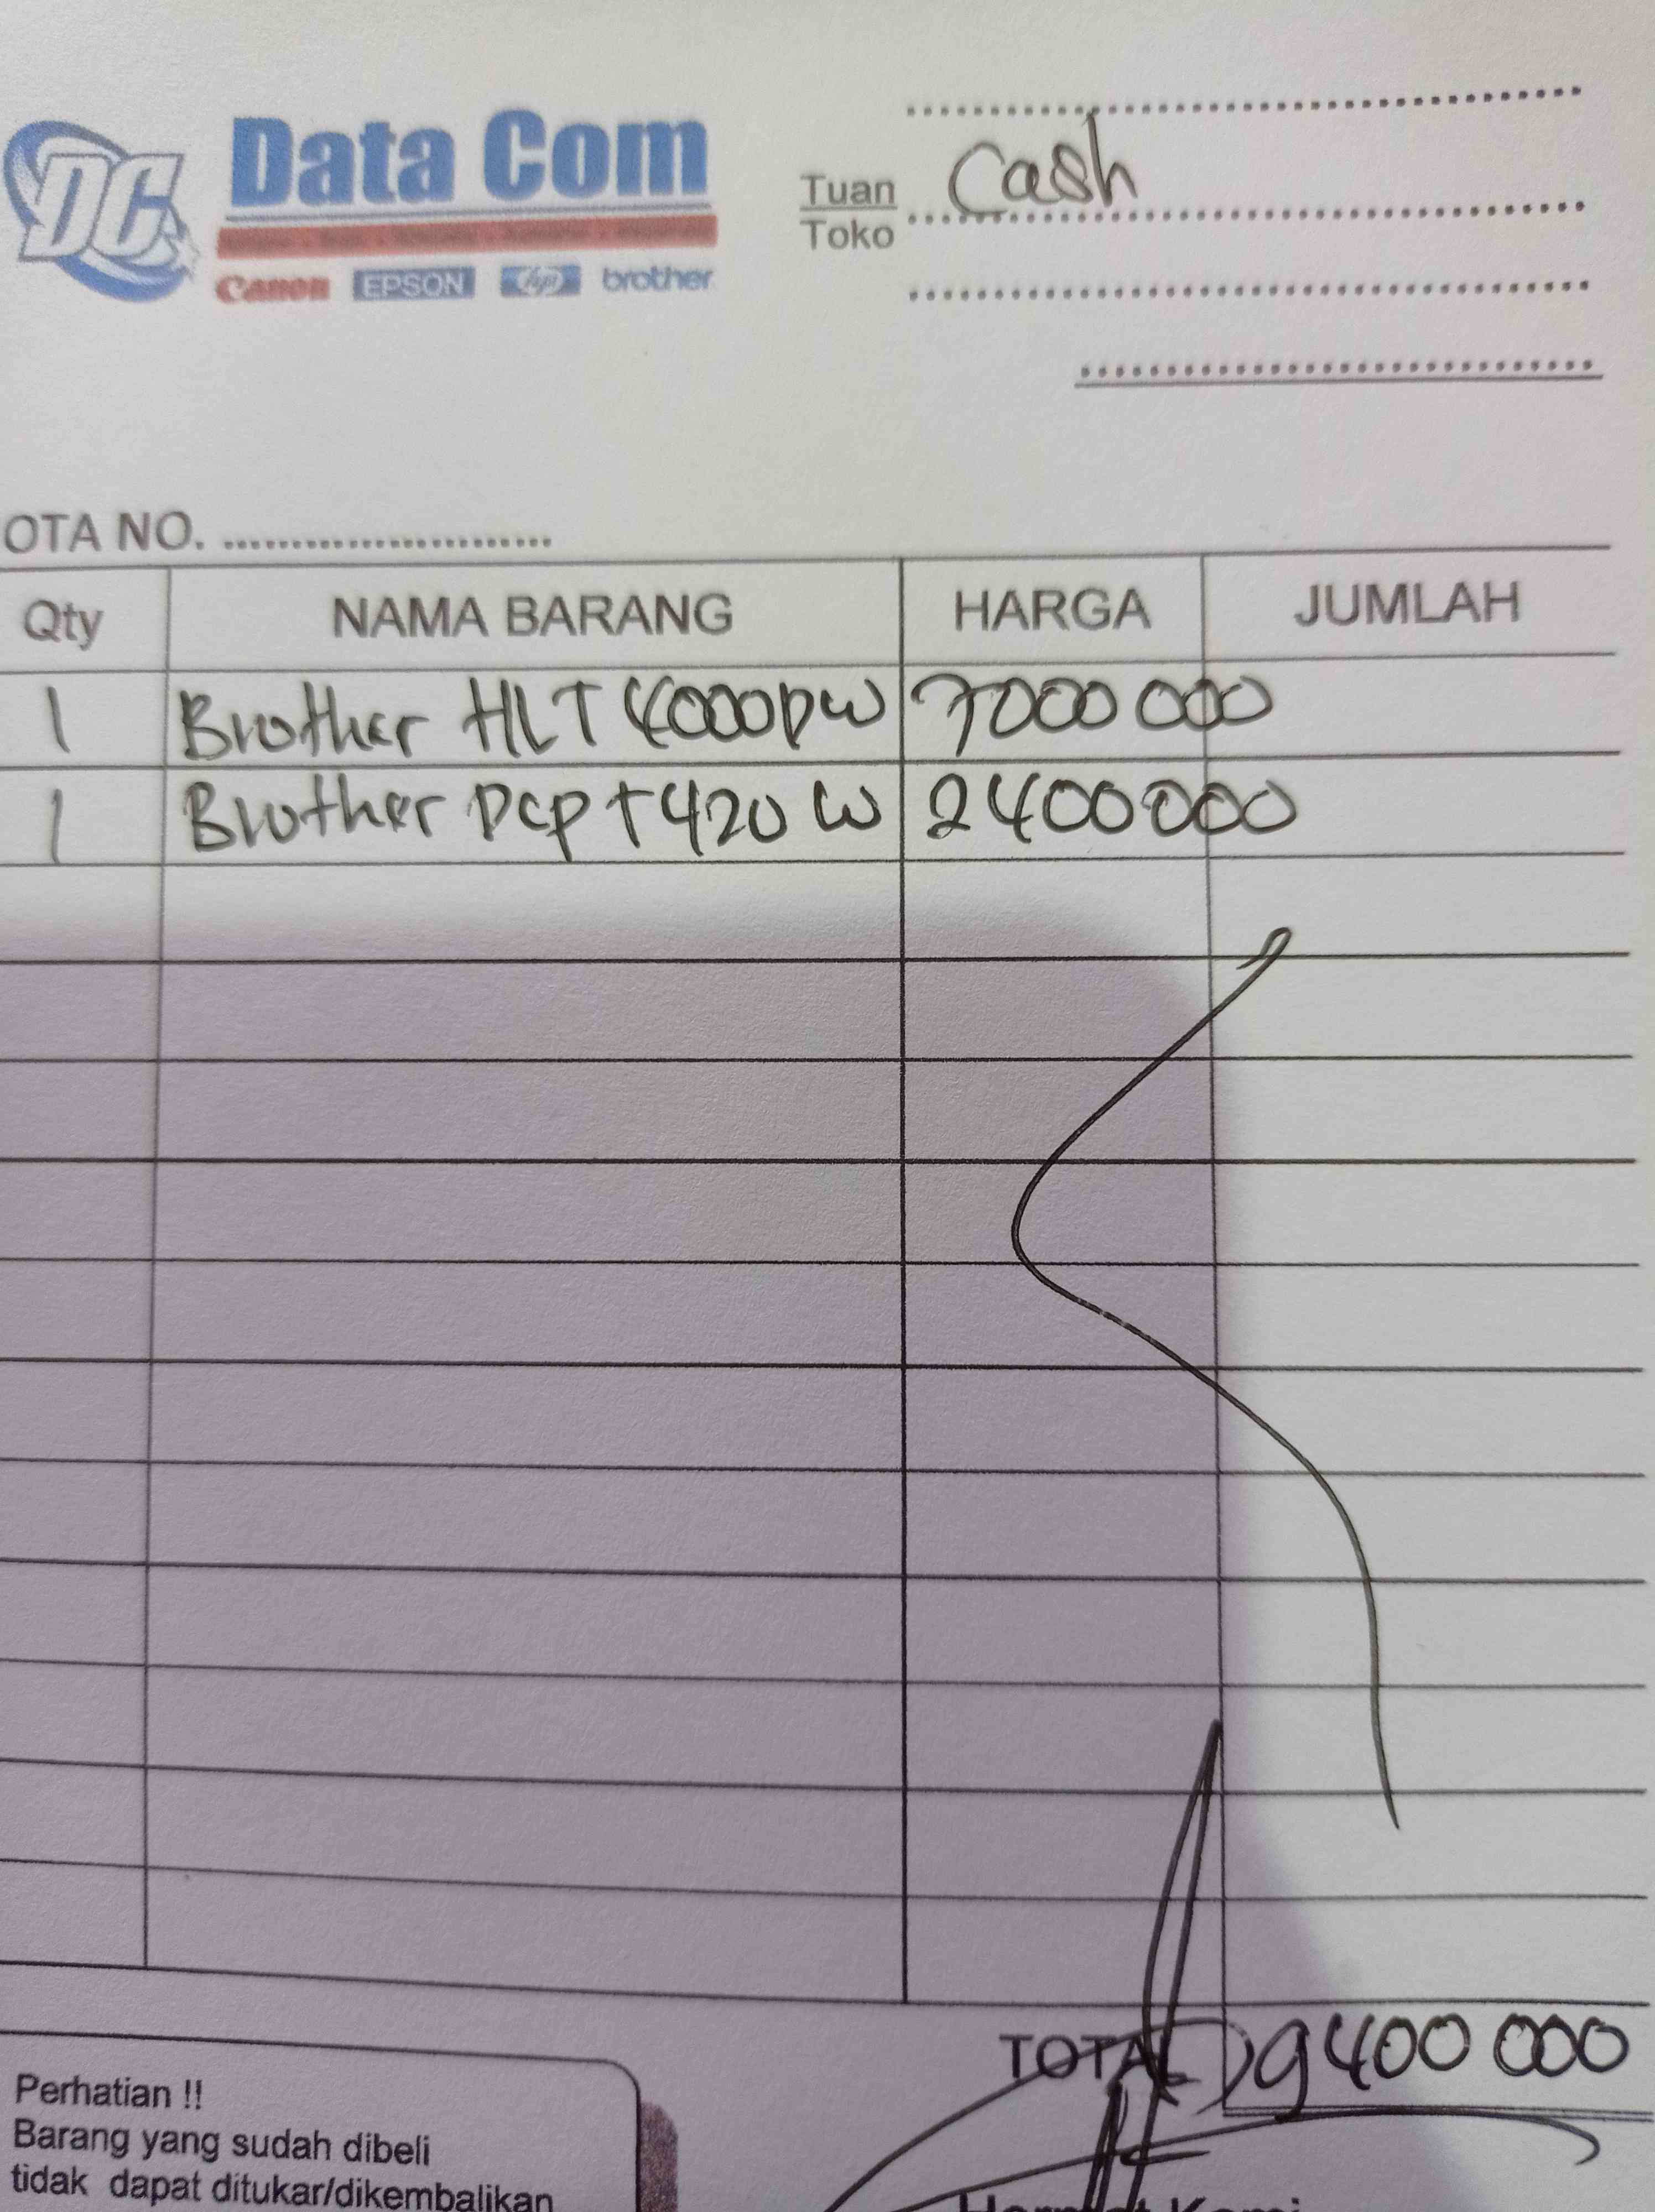 DC
Data Com
Canon EPSON hp brother
Tuan Cash
Toko
OTA NO.
Qty NAMA BARANG HARGA JUMLAH
1 Brother HLT 4000DW 7000 000
1 Brother Dcp T420 W 2400000
TOTAL 9400 000
Perhatian !!
Barang yang sudah dibeli
tidak dapat ditukar/dikembalikan
Hormat Kami